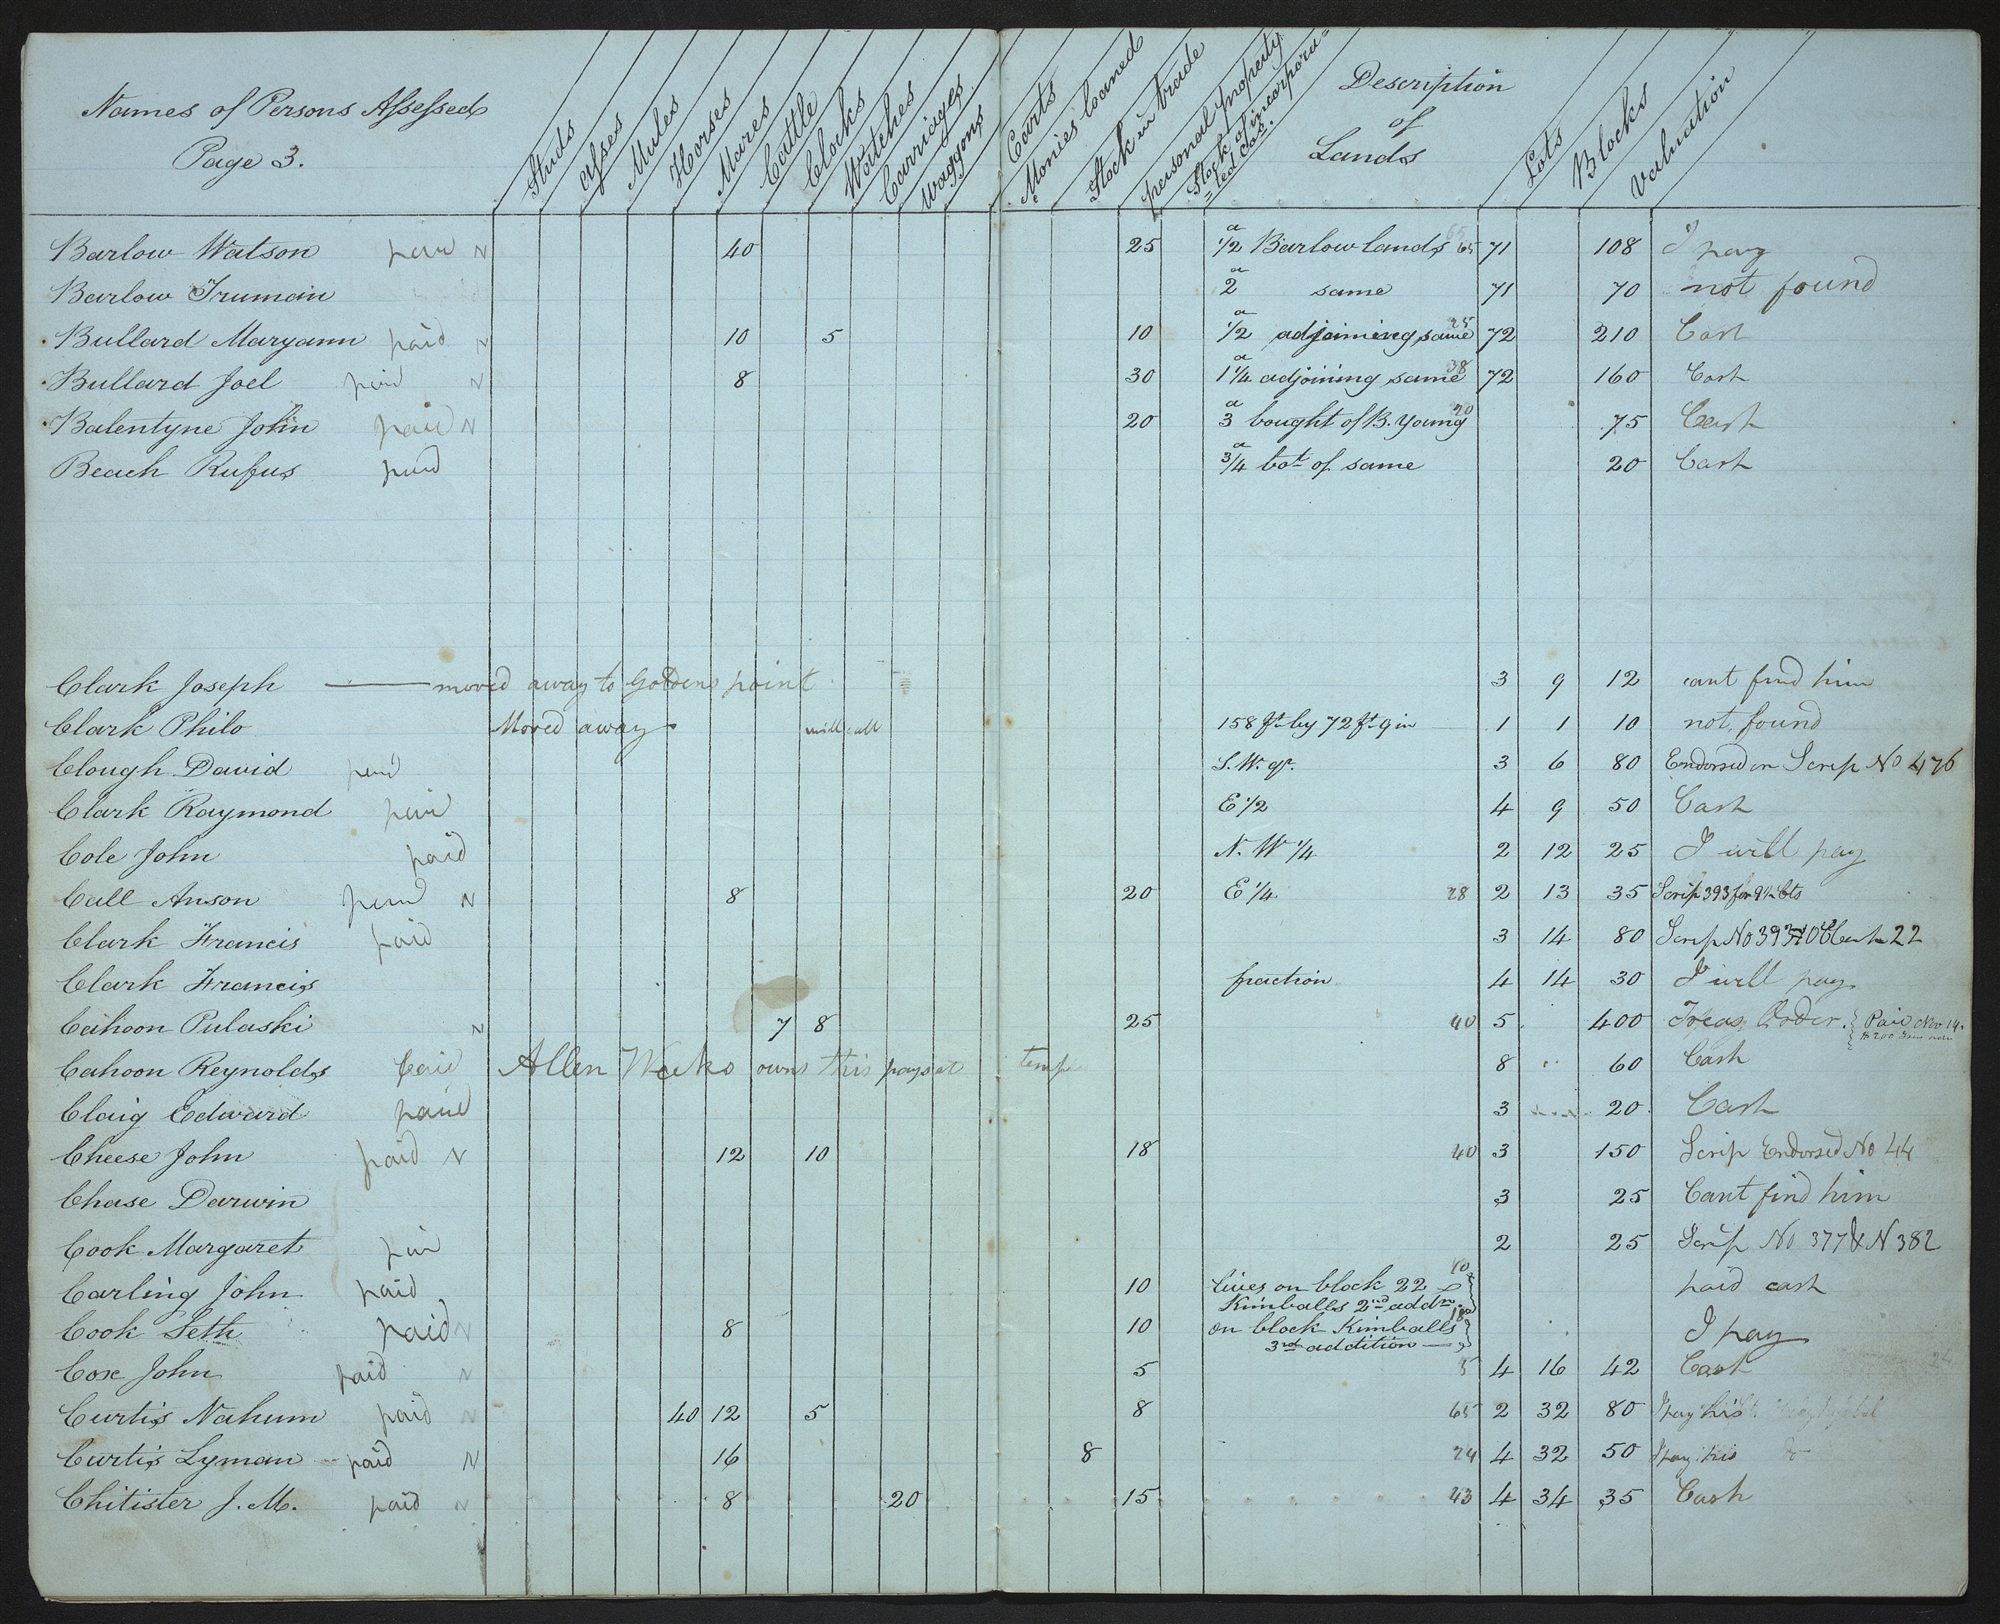 Names of Persons Assessed
Page 3.
Studs
Asses
Mules
Horses
Mares
Cattle
Clocks
Watches
Carriages
Waggons
Carts
Monies loaned
Stock in trade
personal property
Stock of incorpora=
=ted Cos.
Description
of
Lands
Lots
Blocks
Valuation
Barlow Watson paid N 40 25 a 1/2 Barlow lands 65 65 71 108 I pay
Barlow Truman a 2 same 71 70 not found
Bullard Maryann paid N 10 5 10 a 1/2 adjoining same 25 72 210 Cash
Bullard Joel paid N 8 30 a 1 1/4 adjoining same 38 72 160 Cash
Balentyne John paid N 20 a 3 bought of B. Young 20 75 Cash
Beach Rufus paid a 3/4 bot of same 20 Cash
Clark Joseph moved away to Goldens point 3 9 12 cant find him
Clark Philo Moved away will call 158 ft by 72 ft 9 in 1 1 10 not found
Clough David paid S. W. qr. 3 6 80 Endorsed on Scrip No 476
Clark Raymond paid E 1/2 4 9 50 Cash
Cole John paid N. W 1/4 2 12 25 I will pay
Call Anson paid N 8 20 E 1/4 28 2 13 35 Scrip 393 for 9 1/2 Cts
Clark Francis paid 3 14 80 Scrip No 22
Clark Francis fraction 4 14 30 I will pay
Cahoon Pulaski N 7 8 25 40 5 400 Treas Order. Paid Nov 14.
Cahoon Reynolds paid Allen Weeks owns this pays at temple 8 60 Cash
Claig Edward paid 3 20 Cash
Cheese John paid N 12 10 18 40 3 150 Scrip Endorsed No 44
Chase Darwin 3 25 Cant find him
Cook Margaret paid 2 25 Scrip No 377 & N 382
Carling John paid 10 lives on block 22 10 paid cash
Kimballs 2nd addn.
Cook Seth paid N 8 10 on block Kimballs 18 I pay
3rd addition
Cox John paid N 5 5 4 16 42 Cash 24
Curtis Nahum paid N 40 12 5 8 65 2 32 80 I pay his
Curtis Lyman paid N 16 8 24 4 32 50 I pay his
Chitister J. M. paid N 8 20 15 43 4 34 35 Cash